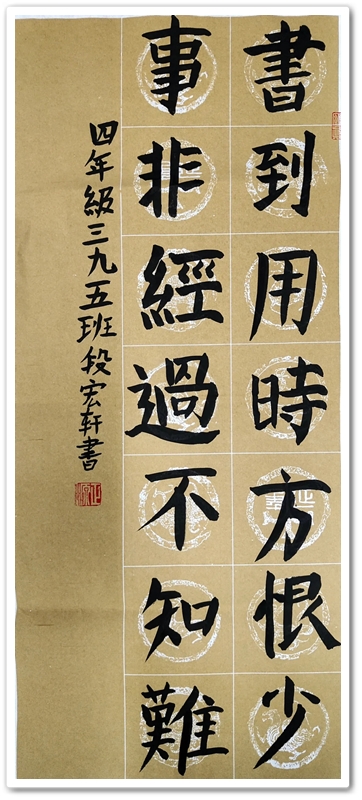 書到用時方恨少
事非經過不知難
四年級三九五班段宏軒書